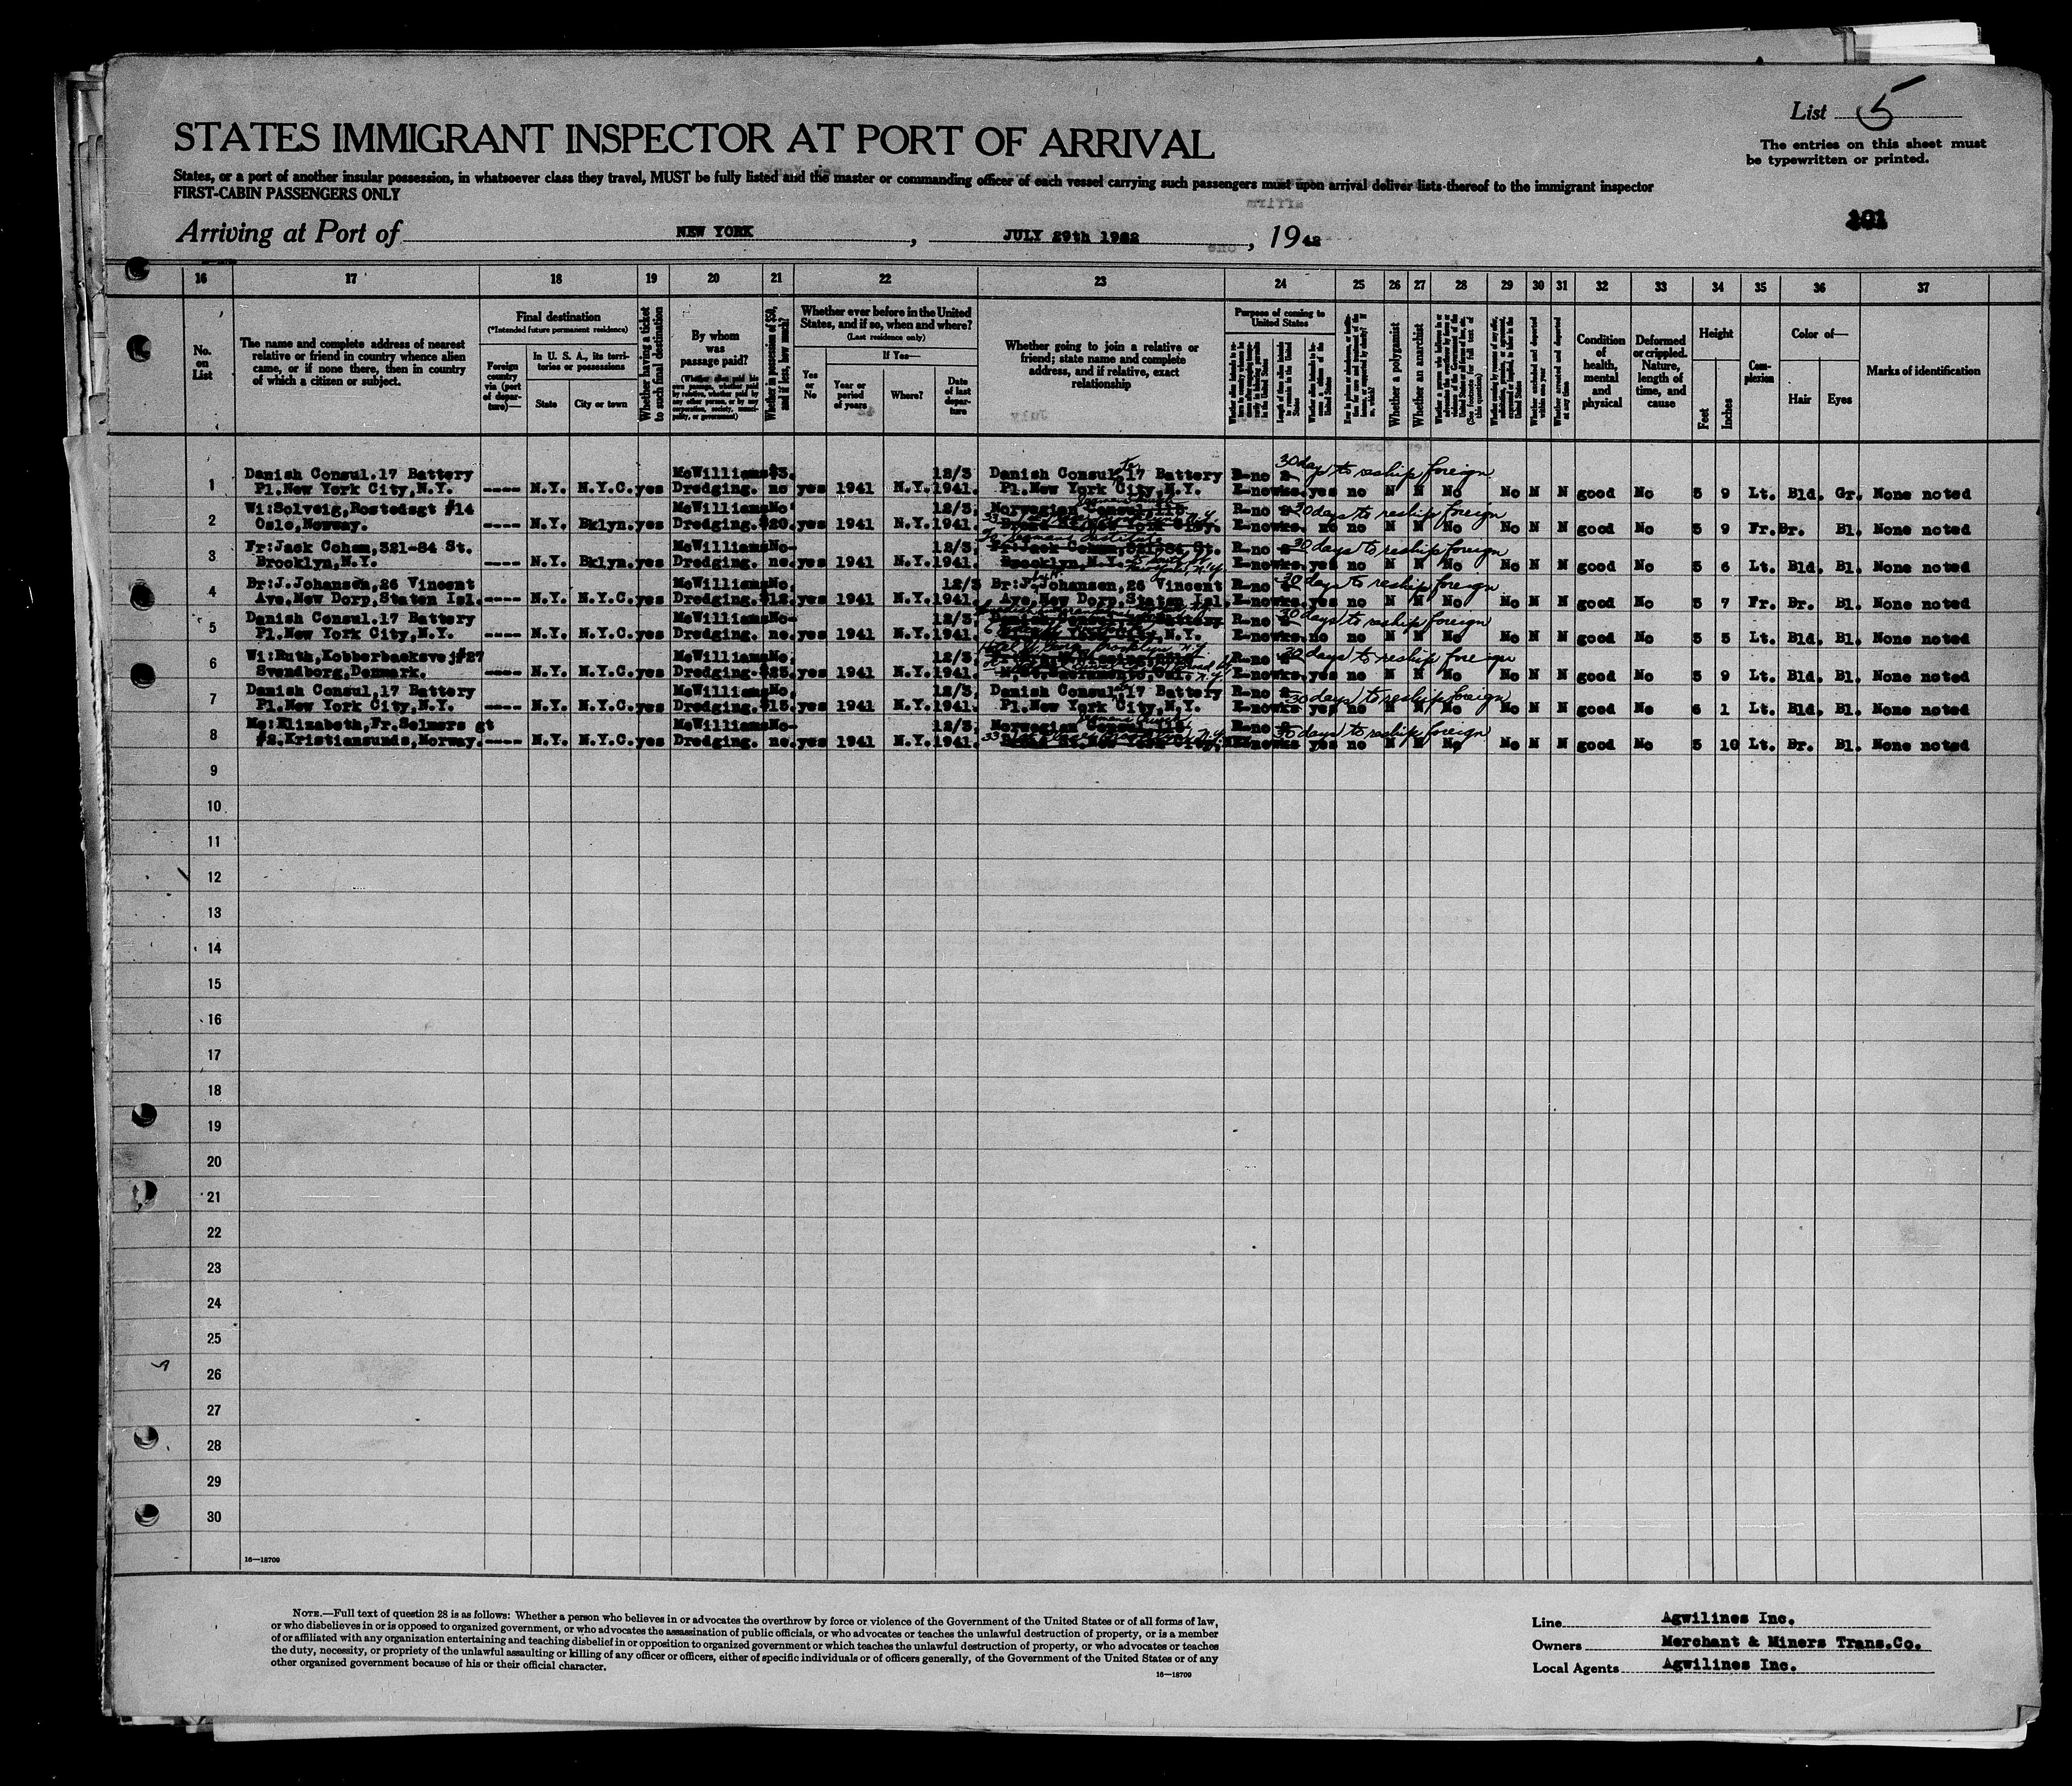 List 5
The entries on this sheet must
be typewritten or printed.
STATES IMMIGRANT INSPECTOR AT PORT OF ARRIVAL
States, or a port of another insular possession, in whatsoever class they travel, MUST be fully listed and the master or commanding officer of each vessel carrying such passengers must upon arrival deliver lists thereof to the immigrant inspector
FIRST-CABIN PASSENGERS ONLY
101
Arriving at Port of NEW YORK, JULY 29th 1942, 1942
16 17 18 19 20 21 22 23 24 25 26 27 28 29 30 31 32 33 34 35 36 37
No. on List
The name and complete address of nearest
relative or friend in country whence alien
came, or if none there, then in country
of which a citizen or subject.
Final destination
(*Intended future permanent residence)
Foreign country via (port of departure)—
In U. S. A., its territories or possessions
State
City or town
Whether having a ticket to such final destination
By whom was passage paid?
Whether in possession of $50, and if less, how much?
Whether ever before in the United
States, and if so, when and where?
(Last residence only)
If Yes—
Yes or No
Year or period of years
Where?
Date of last departure
Whether going to join a relative or
friend; state name and complete
address, and if relative, exact
relationship
Purpose of coming to
United States
Whether a polygamist
Whether an anarchist
Condition of health, mental and physical
Deformed or crippled. Nature, length of time, and cause
Height
Feet
Inches
Complexion
Color of—
Hair
Eyes
Marks of identification
Danish Consul.17 Battery McWilliams $3. 12/3 Danish Consul 17 Battery R-no 30 days to reship foreign
1 Pl.New York City,N.Y. ---- N.Y. N.Y.C. yes Dredging. no yes 1941 N.Y. 1941. Pl.New York City,N.Y. yes no N N No No N N good No 5 9 Lt. Bld. Gr. None noted
Wi:Solveig,Rostedsgt #14 McWilliams No 12/3. Norwegian Consul R-no 30 days to reship foreign
2 Oslo,Norway. ---- N.Y. Bklyn. yes Dredging. $20. yes 1941 N.Y. 1941. no no N N No No N N good No 5 9 Fr. Br. Bl. None noted
Fr:Jack Cohen,321-84 St. McWilliams No- 12/3. Fr:Jack Cohen,321-84 St. R-no 30 days to reship foreign
3 Brooklyn,N.Y. ---- N.Y. Bklyn. yes Dredging. no. yes 1941 N.Y. 1941. Brooklyn,N.Y. yes no N N No No N N good No 5 6 Lt. Bld. Bl. None noted
Br:J.Johansen,26 Vincent McWilliams No. 12/3 Br:J.Johansen,26 Vincent R-no 30 days to reship foreign
4 Ave.New Dorp,Staten Isl. ---- N.Y. N.Y.C. yes Dredging. $12. yes 1941 N.Y. 1941. Ave.New Dorp,Staten Isl. yes no N N No No N N good No 5 7 Fr. Br. Bl. None noted
Danish Consul.17 Battery McWilliams No- 12/3. R-no 30 days to reship foreign
5 Pl.New York City,N.Y. ---- N.Y. N.Y.C. yes Dredging. no. yes 1941 N.Y. 1941. no no N N No No N N good No 5 5 Lt. Bld. Bl. None noted
Wi:Ruth,Kobberbacksvej#27 McWilliams No. 12/3. R-no 30 days to reship foreign
6 Svendborg,Denmark. ---- N.Y. N.Y.C. yes Dredging. $25. yes 1941 N.Y. 1941. yes no N N No No N N good No 5 9 Lt. Bld. Bl. None noted
Danish Consul,17 Battery McWilliams No. 12/3. Danish Consul 17 Battery R-no 30 days to reship foreign
7 Pl.New York City,N.Y. ---- N.Y. N.Y.C. yes Dredging. $15. yes 1941 N.Y. 1941. Pl.New York City,N.Y. yes no N N No No N N good No 6 1 Lt. Bld. Bl. None noted
Mo:Elizabeth,Fr.Selmers gt McWilliams No- 12/3. Norwegian Consul R-no 30 days to reship foreign
8 #2,Kristiansunds,Norway. ---- N.Y. N.Y.C. yes Dredging. no. yes 1941 N.Y. 1941. yes no N N No No N N good No 5 10 Lt. Br. Bl. None noted
9
10
11
12
13
14
15
16
17
18
19
20
21
22
23
24
25
26
27
28
29
30
16—18709
NOTE.—Full text of question 28 is as follows: Whether a person who believes in or advocates the overthrow by force or violence of the Government of the United States or of all forms of law,
or who disbelieves in or is opposed to organized government, or who advocates the assassination of public officials, or who advocates or teaches the unlawful destruction of property, or is a member
of or affiliated with any organization entertaining and teaching disbelief in or opposition to organized government or which teaches the unlawful destruction of property, or who advocates or teaches
the duty, necessity, or propriety of the unlawful assaulting or killing of any officer or officers, either of specific individuals or of officers generally, of the Government of the United States or of any
other organized government because of his or their official character.
16—18709
Line Agwilines Inc.
Owners Merchant & Miners Trans.Co.
Local Agents Agwilines Inc.